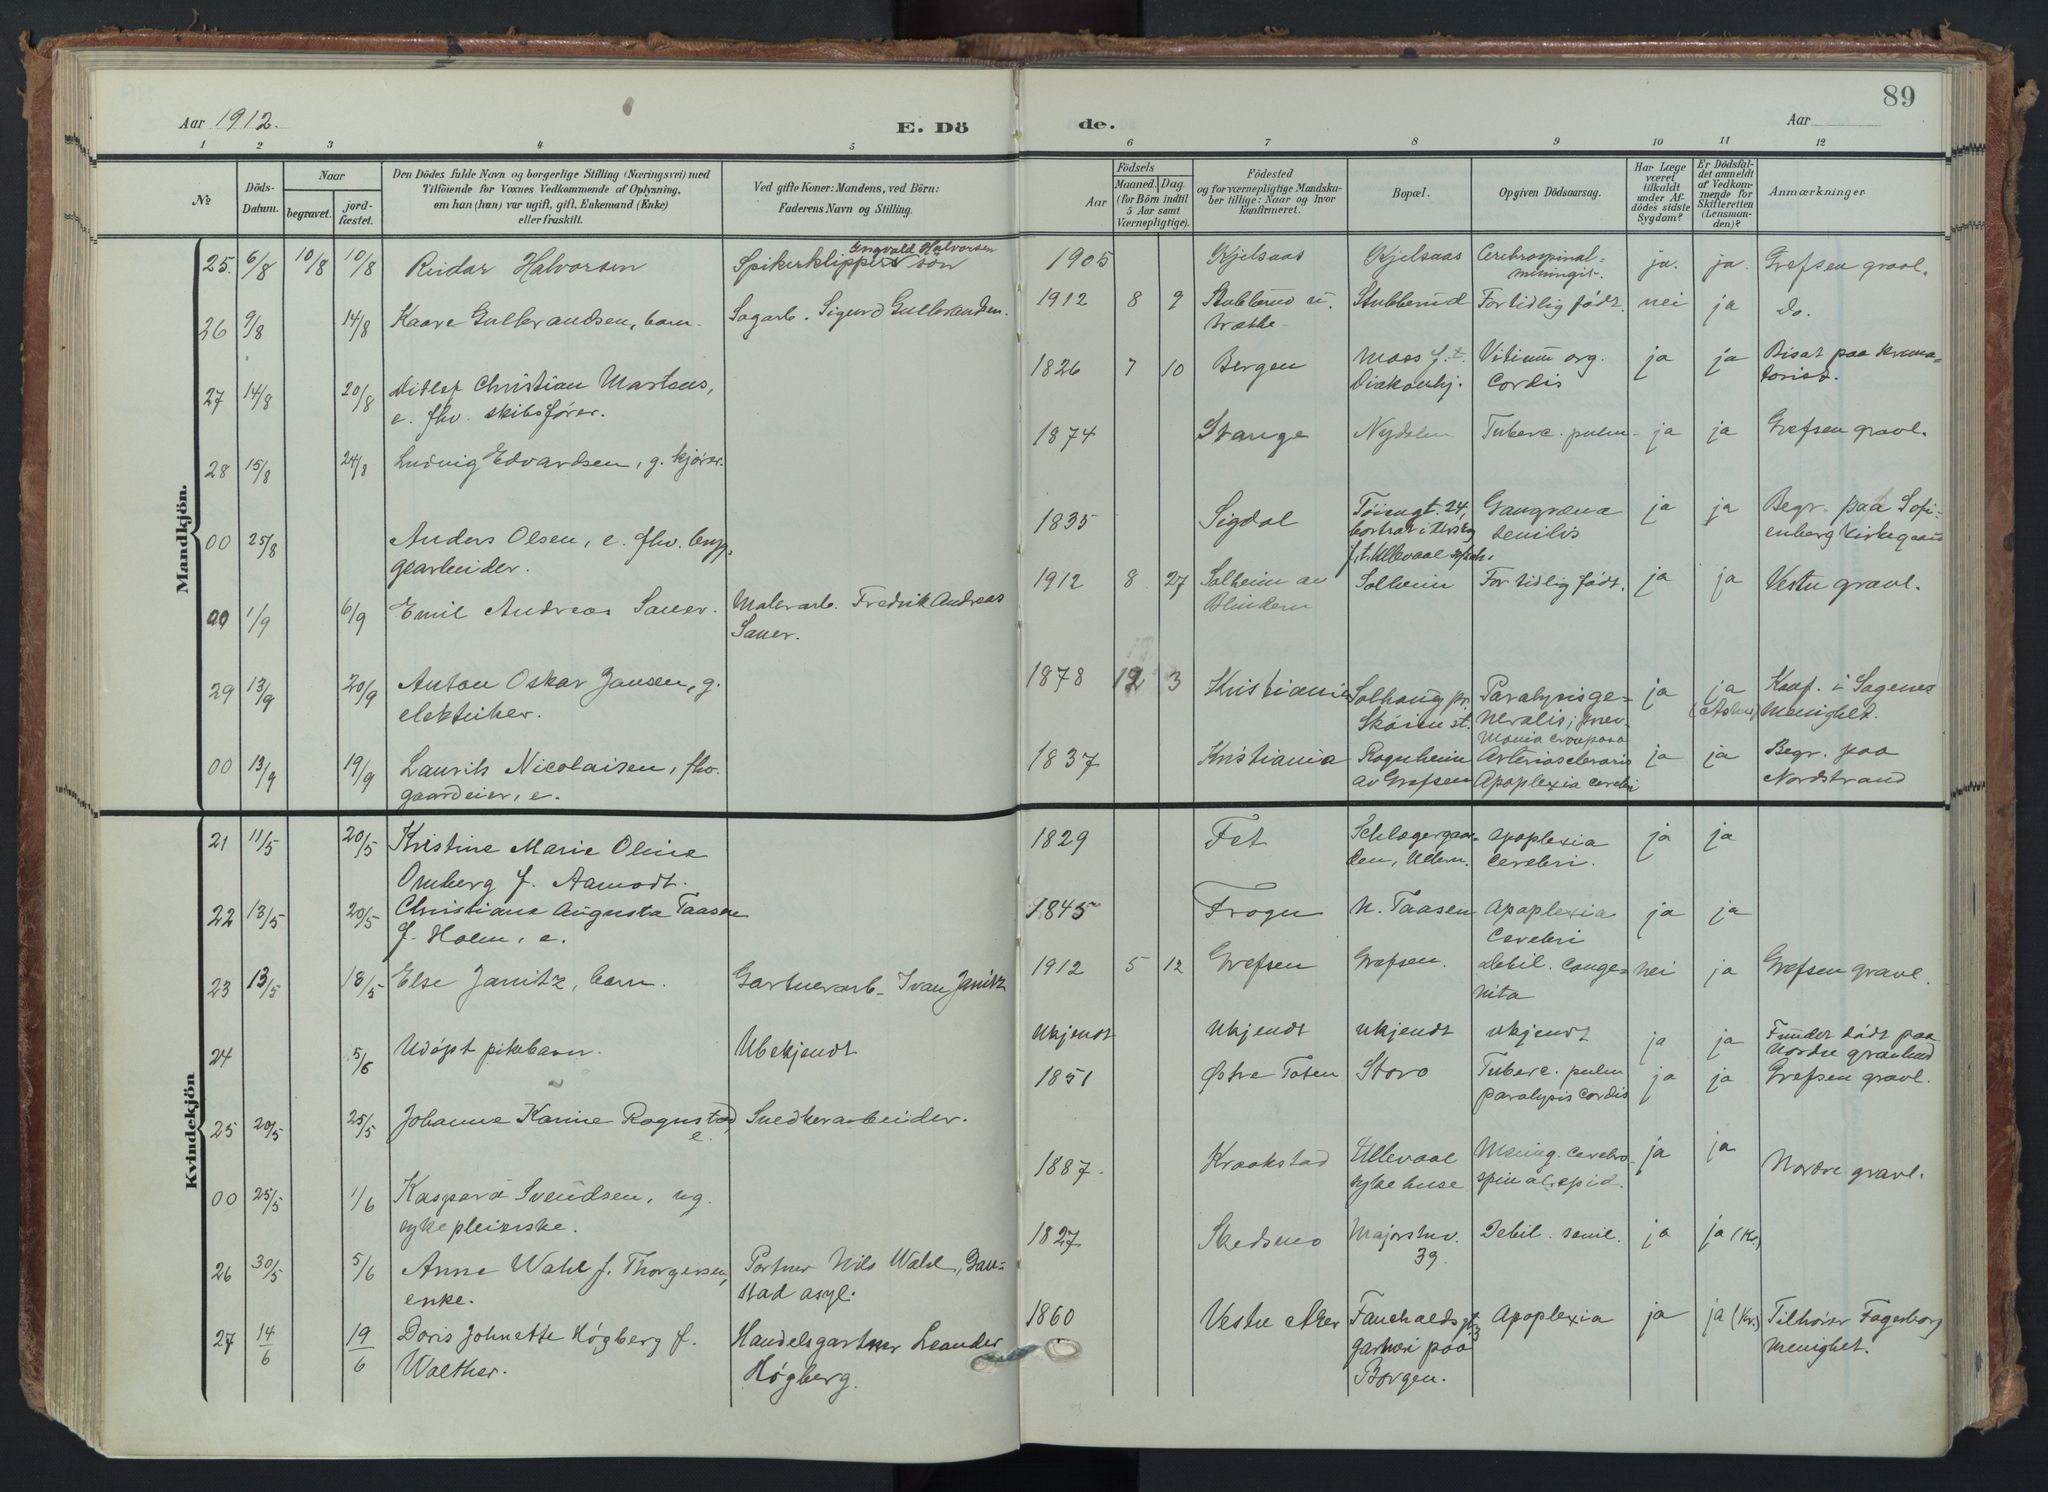 89
Aar 1912.
E. Dö
de.
Aar
1 2 3 4 5 6 7 8 9 10 11 12
№
Döds-Datum.
Naar
begravet.
jord-fæstet.
Den Dödes fulde Navn og borgerlige Stilling (Næringsvei) med
Tilföiende for Voxnes Vedkommende af Oplysning,
om han (hun) var ugift, gift, Enkemand (Enke)
eller fraskilt.
Ved gifte Koner: Mandens, ved Börn:
Faderens Navn og Stilling.
Födsels
Aar
Maaned. Dag.
(for Börn indtil
5 Aar samt
Værnepligtige).
Födested
og for værnepligtige Mandska-
ber tillige: Naar og hvor
konfirmeret.
Bopæl.
Opgiven Dödsaarsag.
Har Læge
været
tilkaldt
under Af-
dödes sidste
Sygdom?
Er Dödsfal-
det anmeldt
af Vedkom-
mende for
Skifteretten
(Lensman-
den)?
Anmærkninger
Mandkjön.
25. 6/8 10/8 10/8 Reidar Halvorsen Spikerklipper Ingvald Halvorsen sön 1905 Kjelsaas Kjelsaas Cerebrospinal-
meningit. ja. ja. Grefsen gravl.
26 9/8 14/8 Kaare Gulbrandsen, barn. Sagarb. Sigurd Gulbrandsen. 1912 8 9 Stubberud u.
trætte Stubberud For tidlig født. nei ja Do.
27 14/8 20/8 Ditlef Christian Martens,
e. fhv. skibsfører. 1826 7 10 Bergen Moss f. t.
Diakonhj. Vitium org.
Cordis ja ja Bisat paa krema-
toriet.
28 15/8 24/8 Ludvig Edvardsen, g. kjører. 1874 Stange Nydalen Tuberc. pulm. ja ja Grefsen gravl.
00 25/8 Anders Olsen, e. fhv. bryg-
gearbeider. 1835 Sigdal Tøiengt. 24,
f. t. Ullevaal sykeh. Gangræna
senilis ja ja Begr. paa Sofi-
enberg kirkegaard
00 1/9 6/9 Emil Andreas Sauer. Malerarb. Fredrik Andreas
Sauer. 1912 8 27 Solheim av
Blindern Solheim For tidlig født. ja ja Vestre gravl.
29 13/9 20/9 Anton Oskar Jansen, g.
elektriker. 1878 12 3 Kristiania Solhaug pr.
Skøien st. Paralysis ge-
neralis; pneu-
monia crouposa ja ja
(Asker) Konf. i Sagenes
menighet.
00 13/9 19/9 Laurits Nicolaisen, fhv.
gaardeier, e. 1837 Kristiania Rognheim
av Grefsen Arteriosclerosis
Apoplexia cerebri ja ja Begr. paa
Nordstrand
Kvindekjön
21 11/5 20/5 Kristine Marie Oline
Omberg f. Aamodt. 1829 Fet Schlægergaar-
den, Ullern. Apoplexia
Cerebri. ja ja
22 13/5 20/5 Christiane Augusta Taasen
f. Holm, e. 1845 Frogn N. Taasen Apoplexia
Cerebri ja ja
23 13/5 18/5 Else Janitz, barn. Gartnerarb. Ivan Janitz 1912 5 12 Grefsen Grefsen. Debil. conge-
nita nei ja Grefsen gravl.
24 5/6 Udøpt pikebarn. Ubekjendt Ukjendt Ukjendt ukjendt ukjendt ja ja Fundet dødt paa
Nordre gravlund
25 20/5 25/5 Johanne Karine Rognstad,
e. Snedkerarbeider. 1851 Østre Toten Storo Tuberc. pulm
paralysis cordis ja ja Grefsen gravl.
00 25/5 1/6 Kaspara Svendsen, ug.
sykepleierske. 1887. Kraakstad Ullevaal
sykehuse Mening. cerebro-
spinal. epid. ja ja Nordre gravl.
26 30/5 5/6 Anne Wahl f. Thorgersen,
enke. Portner Nils Wahl, Gau-
stad asyl. 1827 Skedsmo Majorstuv.
39. Debil. senil. ja ja (Kr.)
27 14/6 19/6 Doris Johnette Høgberg f.
Walther. Handelsgartner Leander
Høgberg. 1860 Vestre Aker Fauchaldsgt.
gartneri paa
Borgen. Apoplexia ja ja (Kr.) Tilhører Fagerborg
menighet.